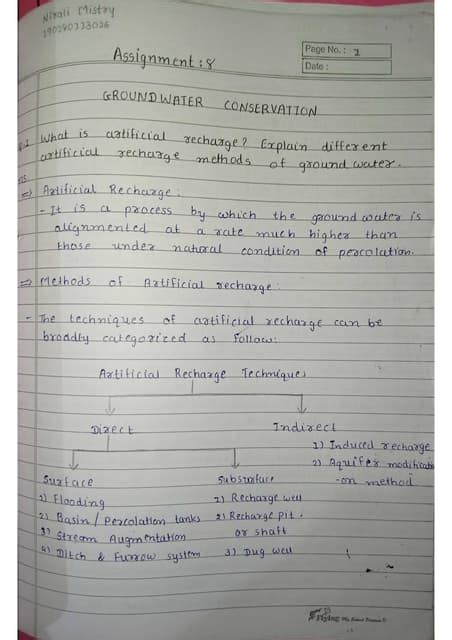 Nirali Mistry
190290333026
Page No.: 1
Date:
Assignment: 8
GROUNDWATER CONSERVATION
What is artificial recharge? Explain different
artificial recharge methods of ground water.
⇒ Artificial Recharge:
- It is a process by which the ground water is
alignmented at a rate much higher than
those under natural condition of percolation.
⇒ Methods of Artificial recharge:
- The techniques of artificial recharge can be
broadly categorized as follow:
Artificial Recharge Techniques
Direct
Indirect
1) Induced recharge
2) Aquifer modificati
-on method
Surface
1) Flooding
2) Basin / Percolation tanks
3) Stream Augmentation
4) Ditch & Furrow system
Subsurface
1) Recharge well
2) Recharge pit
or shaft
3) Dug well
Flying